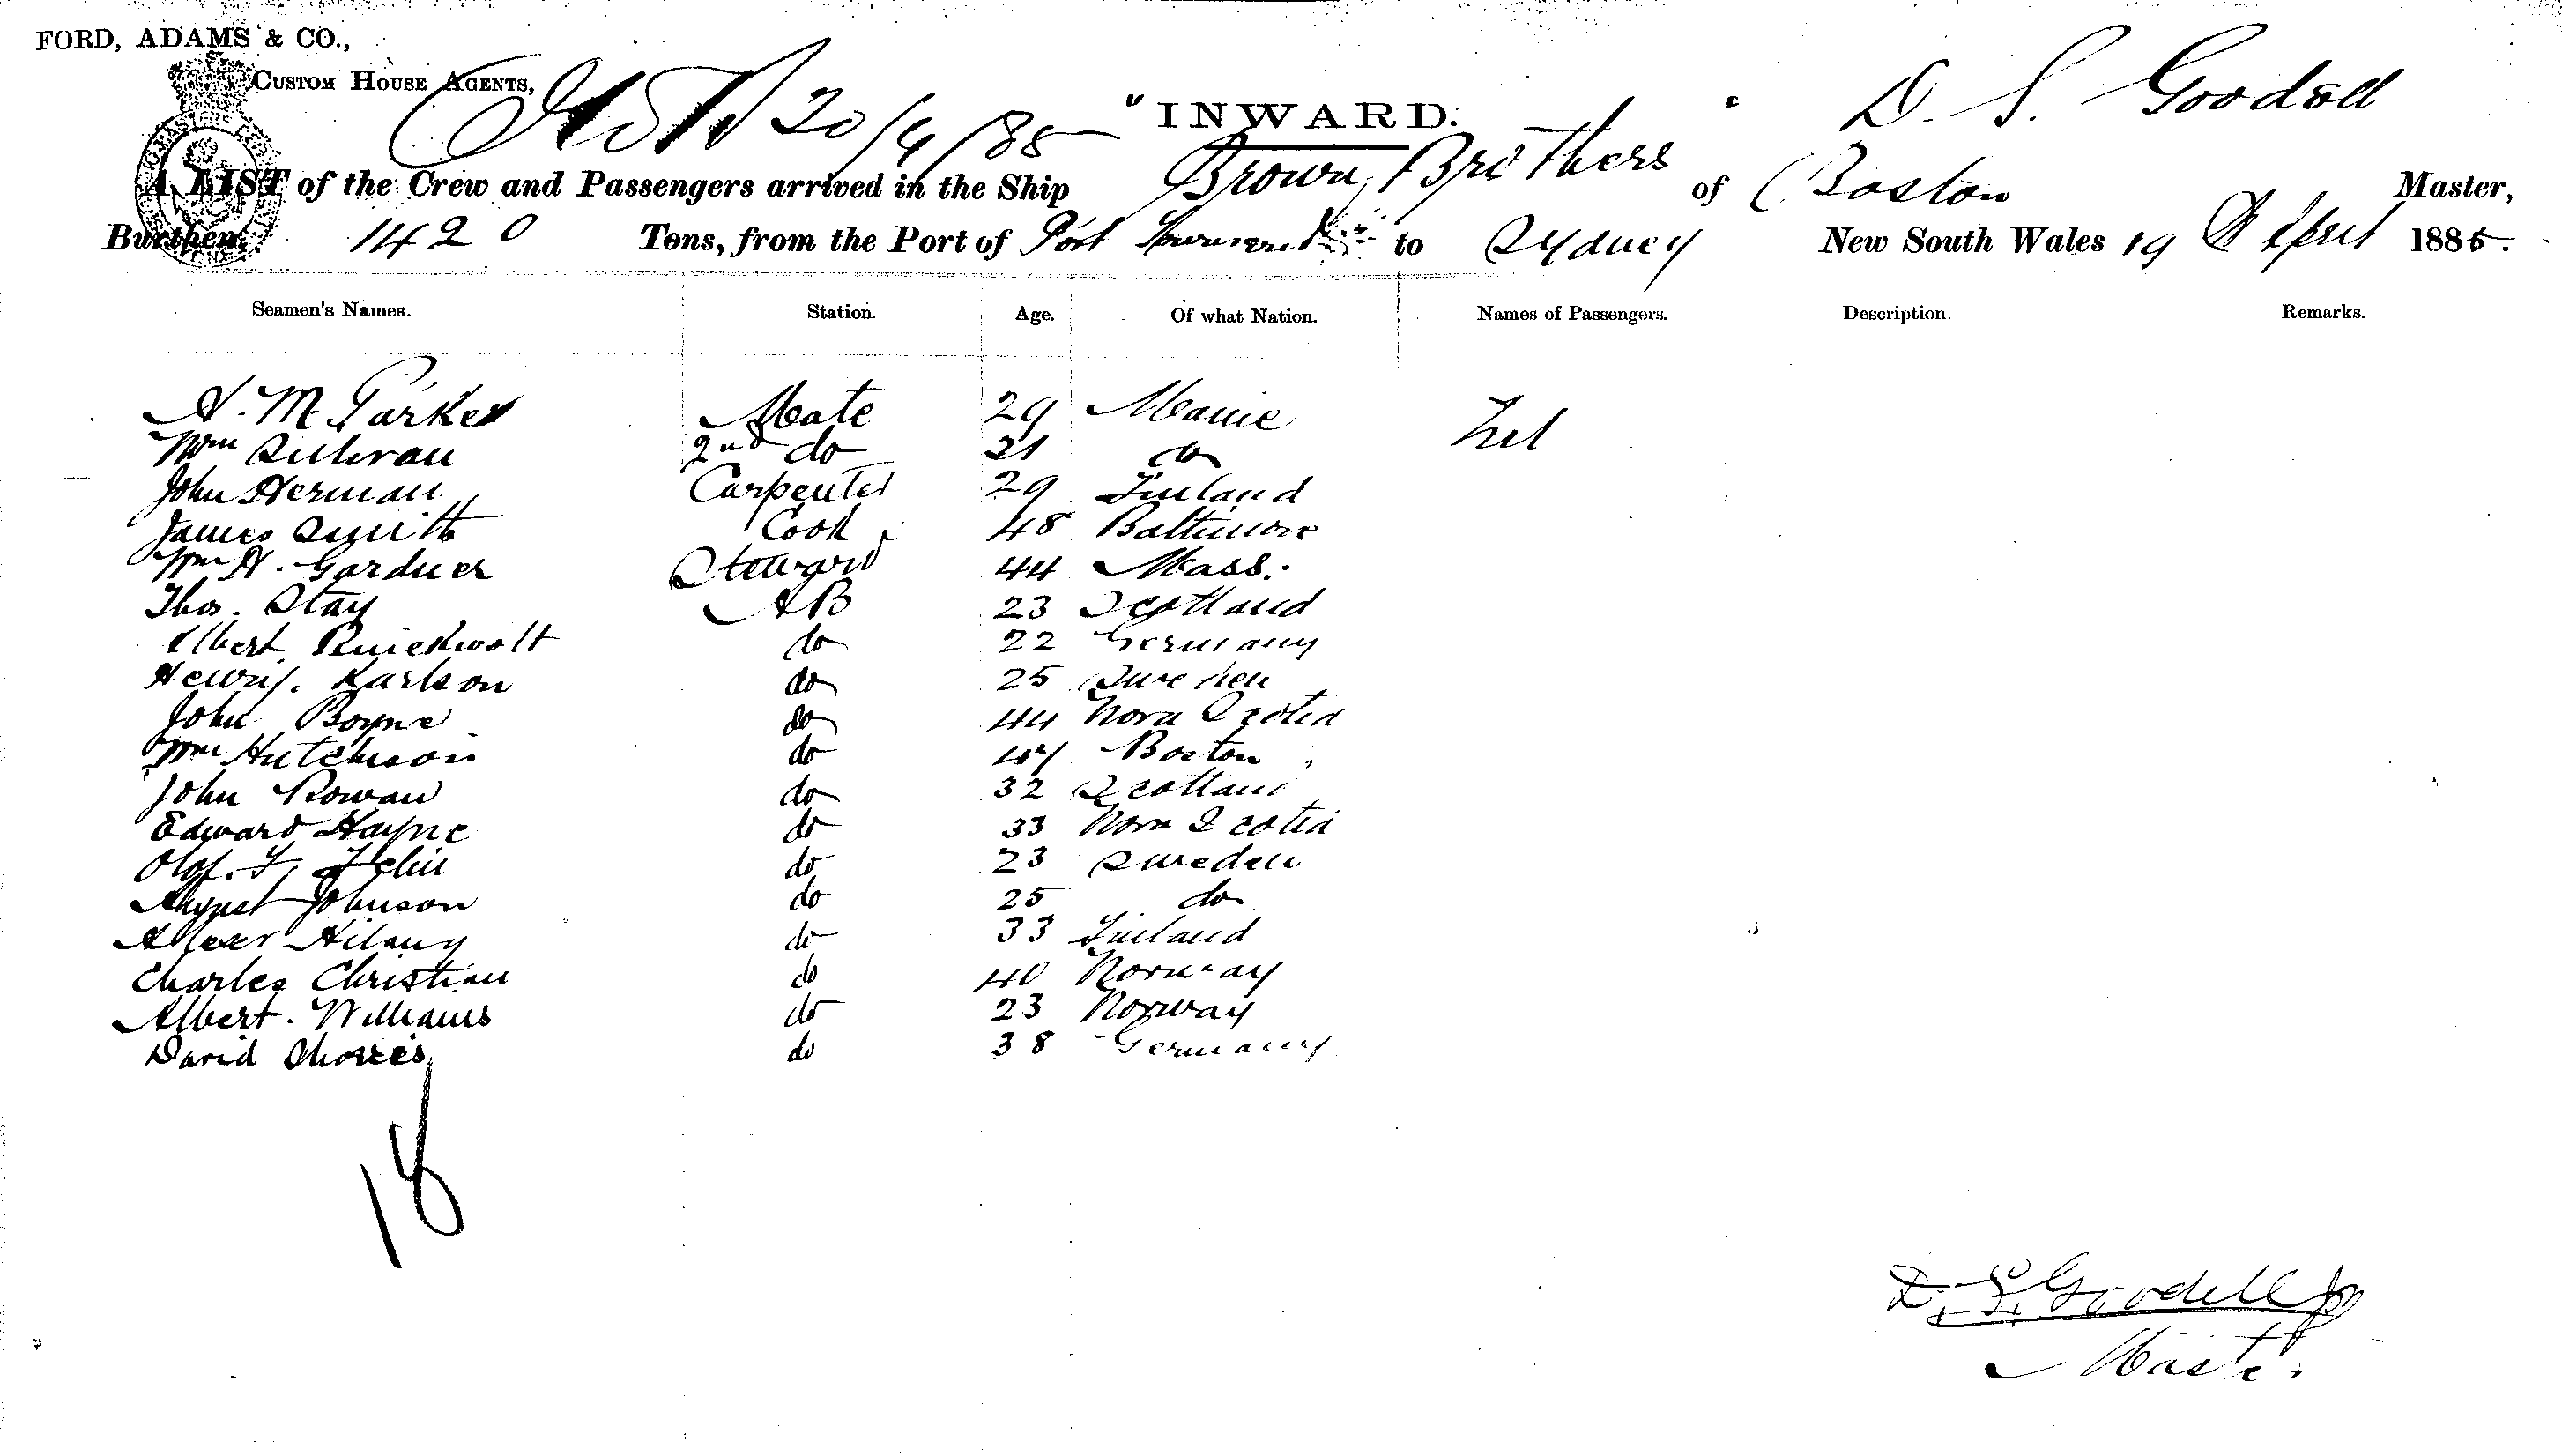 FORD, ADAMS & CO.,
CUSTOM HOUSE AGENTS,
20/4/85
"INWARD."
D. S. Goodell
A LIST of the Crew and Passengers arrived in the Ship Brown Brothers of Boston Master,
Burthen, 1420 Tons, from the Port of Port Townsend to Sydney New South Wales 19 April 1885.
Seamen's Names. Station. Age. Of what Nation. Names of Passengers. Description. Remarks.
A. M. Parker Mate 29 Maine Nil
Wm Sullivan 2nd do 21 do
John Herman Carpenter 29 Finland
James Smith Cook 48 Baltimore
Wm H. Gardner Steward 44 Mass.
Thos. Stay AB 23 Scotland
Albert do 22 Germany
Henry. Karlson do 25 Sweden
John Boyne do 44 Nova Scotia
Wm Hutchison do Boston
John Rowan do 32 Scotland
Edward Hayne do 33 Nova Scotia
Olof. do 23 Sweden
August Johnson do 25 do
do 33 Finland
Charles Christian do 40 Norway
Albert. Williams do 23 Norway
David do 38 Germany
18
D. S. Goodell Jr
Master